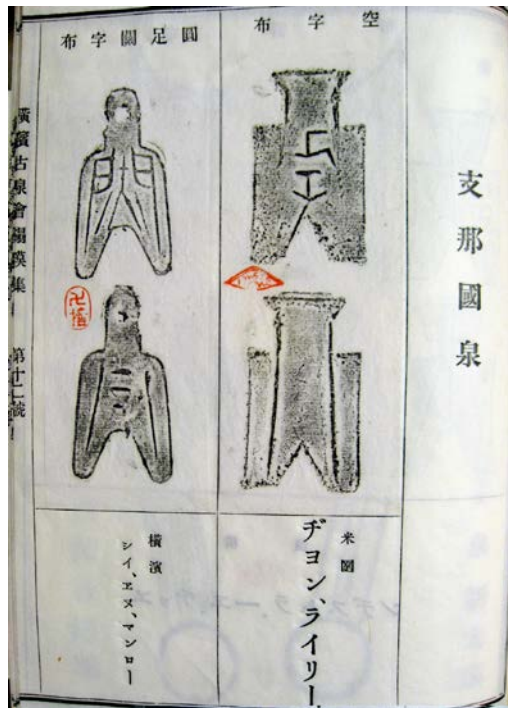 支那國泉
空字布
米國
ヂヨン、ライリー
圓足關字布
橫濱
シイ、ヱメ、マンロー
橫濱古泉會搨摸集 第十二號